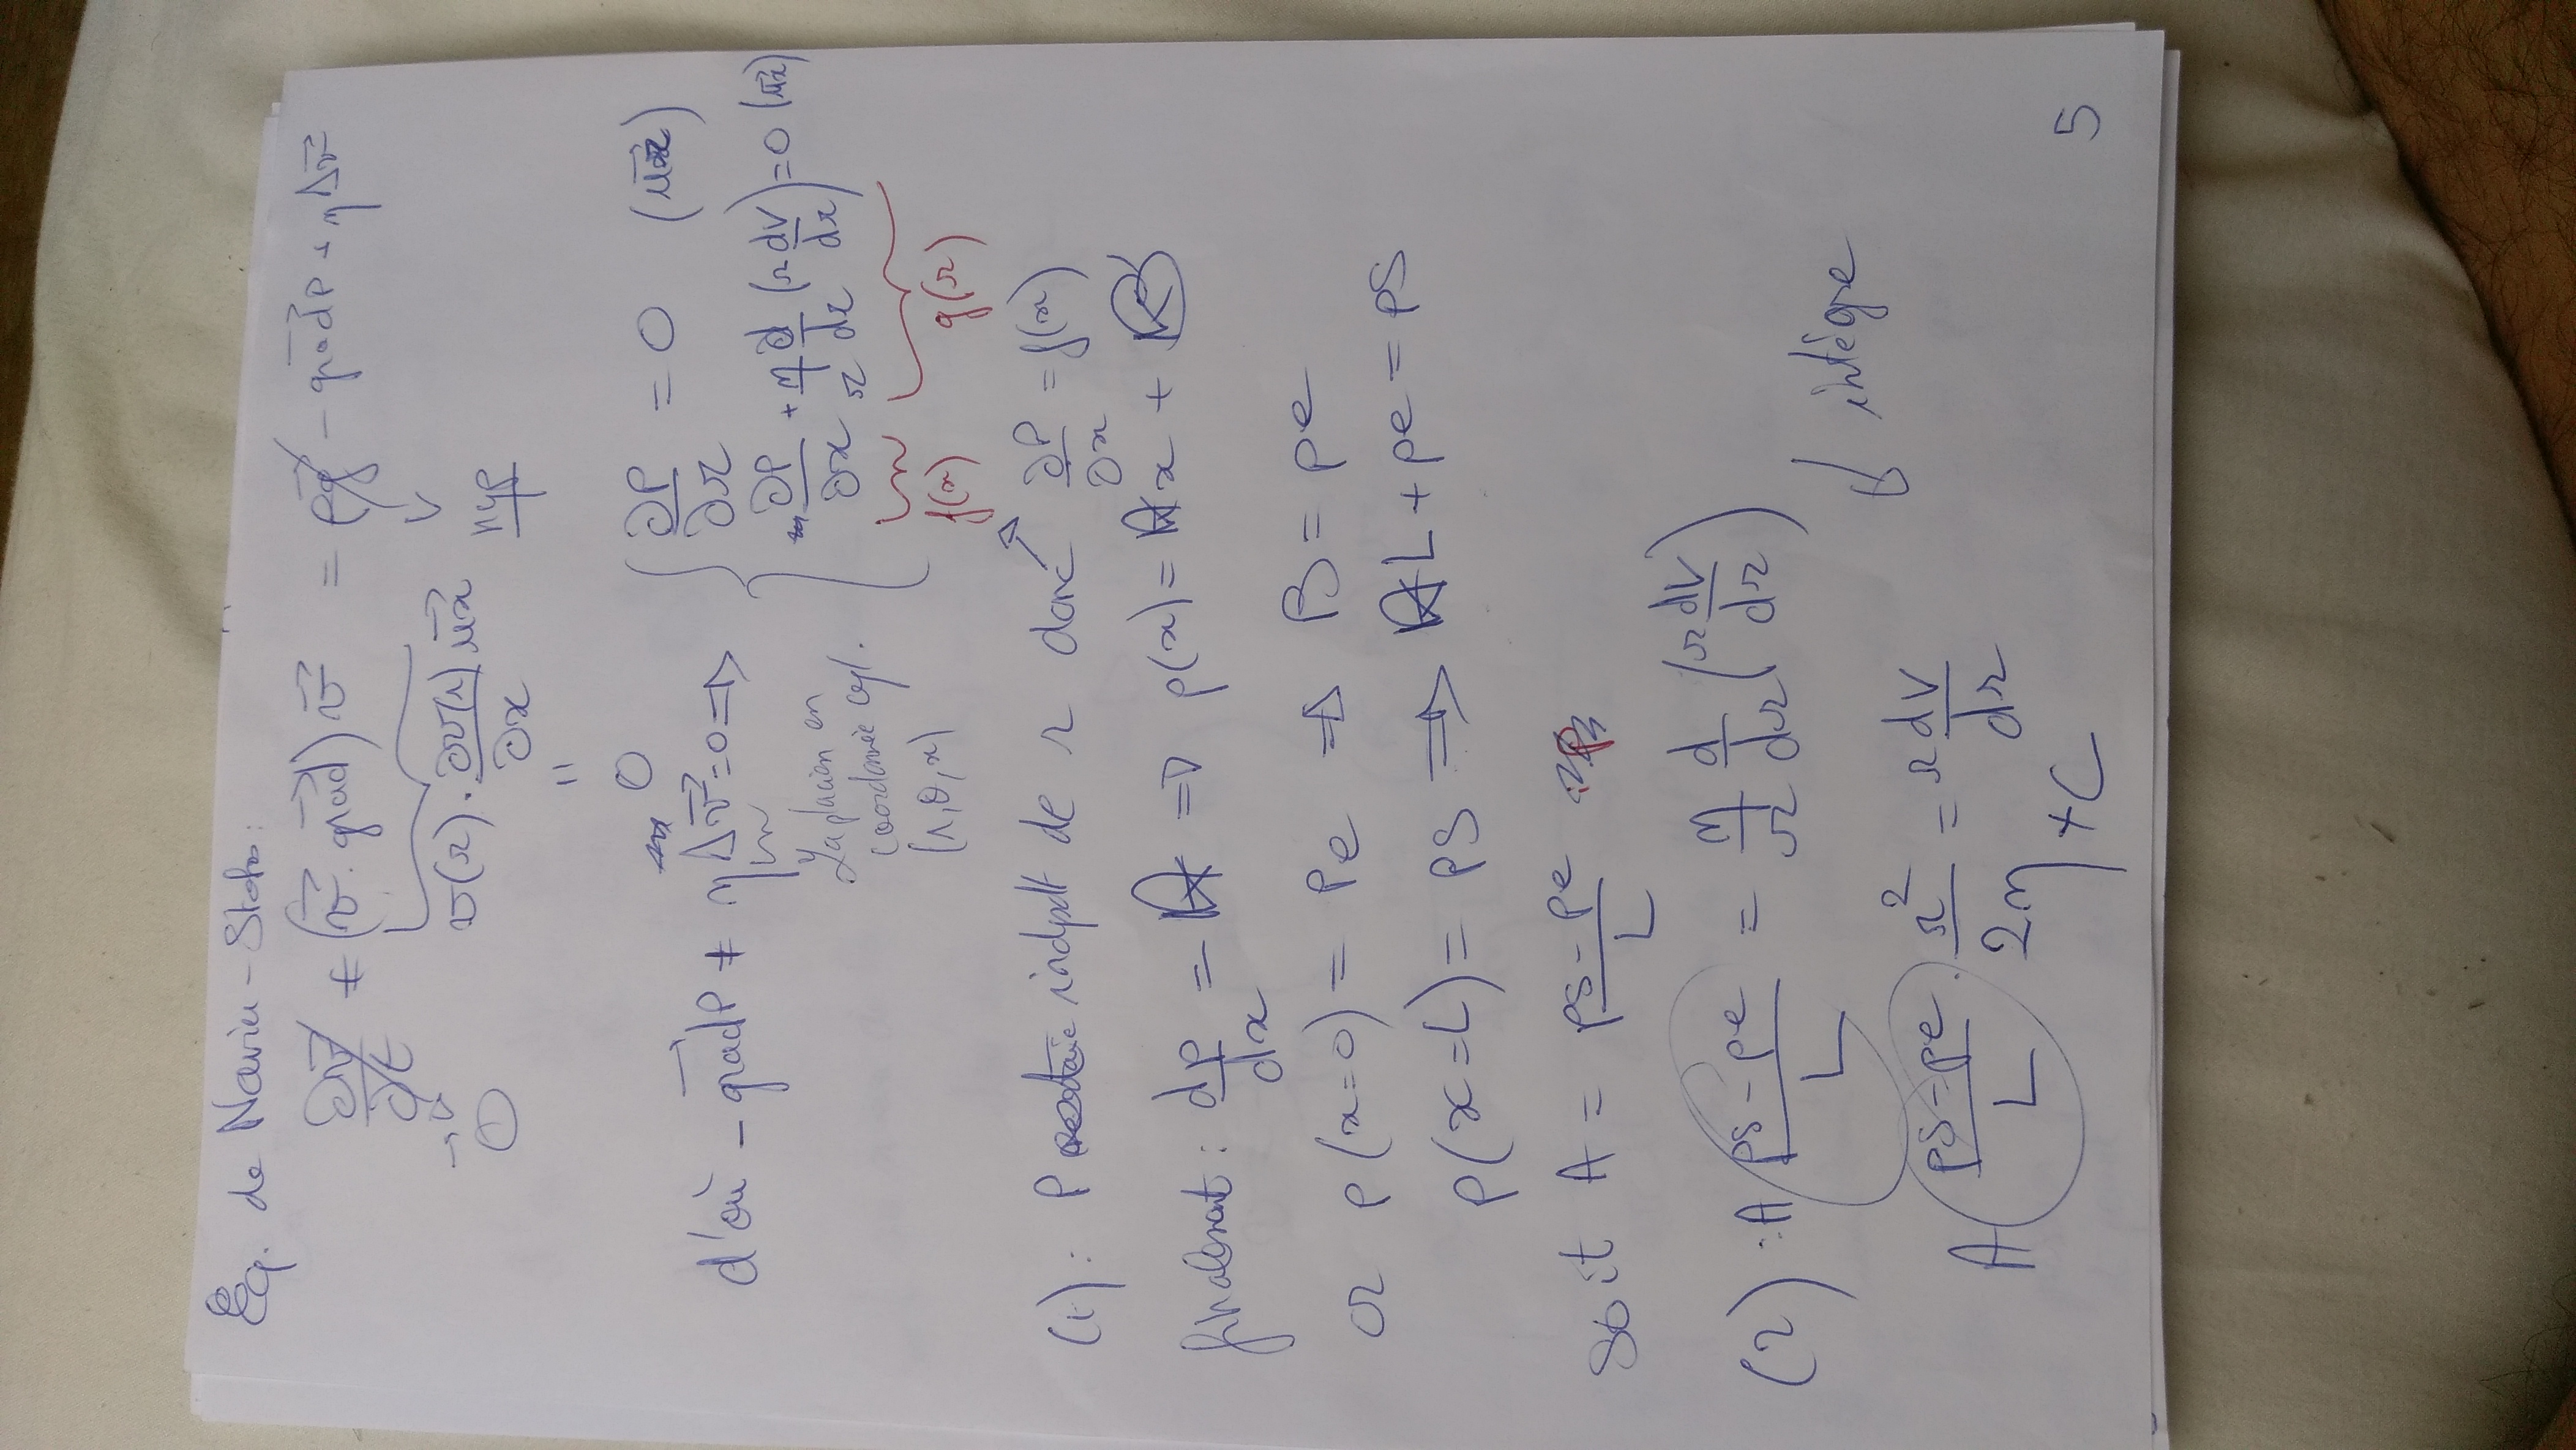 Eq. de Navier-Stokes:
∂v⃗/∂t + (v⃗.grad⃗)v⃗ = ρg⃗ - grad⃗P + η Δv⃗
→ 0
v(r).∂v(r)/∂x u⃗x
hyp
"
0
d'où - grad⃗P + η Δv⃗ = 0 ⇒ { ∂P/∂r = 0 (u⃗r)
- ∂P/∂x + η/r d/dr (r dV/dr) = 0 (u⃗x)
Laplacien en
coordonnée cyl.
(r,θ,x)
f(x) g(r)
(1): P indpdt de r donc ∂P/∂x = f(x)
finalement: dp/dx = A ⇒ p(x) = Ax + B
or p(x=0) = Pe ⇒ B = pe
p(x=L) = PS ⇒ AL + pe = PS
Soit A = (PS - Pe)/L
(2): A (PS - Pe)/L = η/r d/dr (r dV/dr)
intègre
A (PS - Pe)/L . r²/2η = r dV/dr
+ C
5